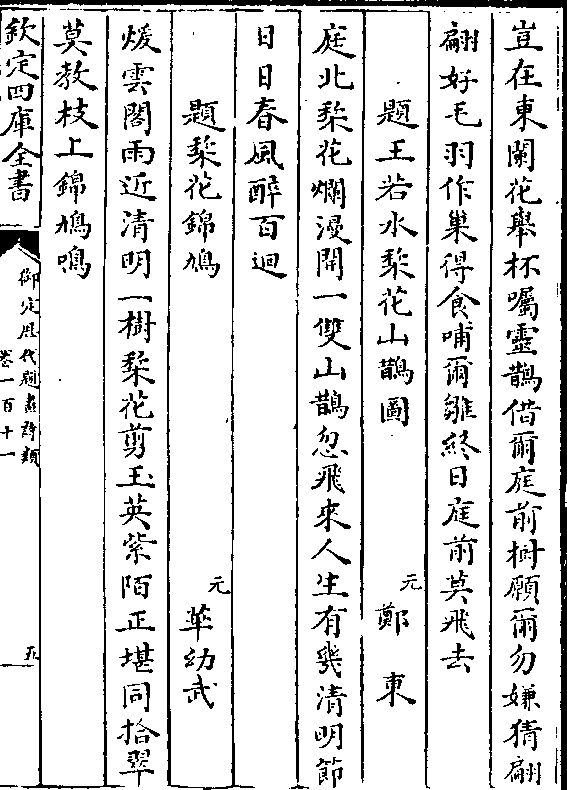 豈在東闌花舉杯囑靈鵲借爾庭前樹願爾勿嫌猜翩
翩好毛羽作巢得食哺爾雛終日庭前莫飛去
題王若水棃花山鵲圖 元 鄭東
庭北棃花爛漫開一雙山鵲忽飛來人生有幾清明節
日日春風醉百迴
題棃花錦鳩 元 華幼武
煖雲閣雨近清明一樹棃花剪玉英紫陌正堪同拾翠
莫教枝上錦鳩鳴
欽定四庫全書
御定歷代題畫詩類
卷一百十一
五